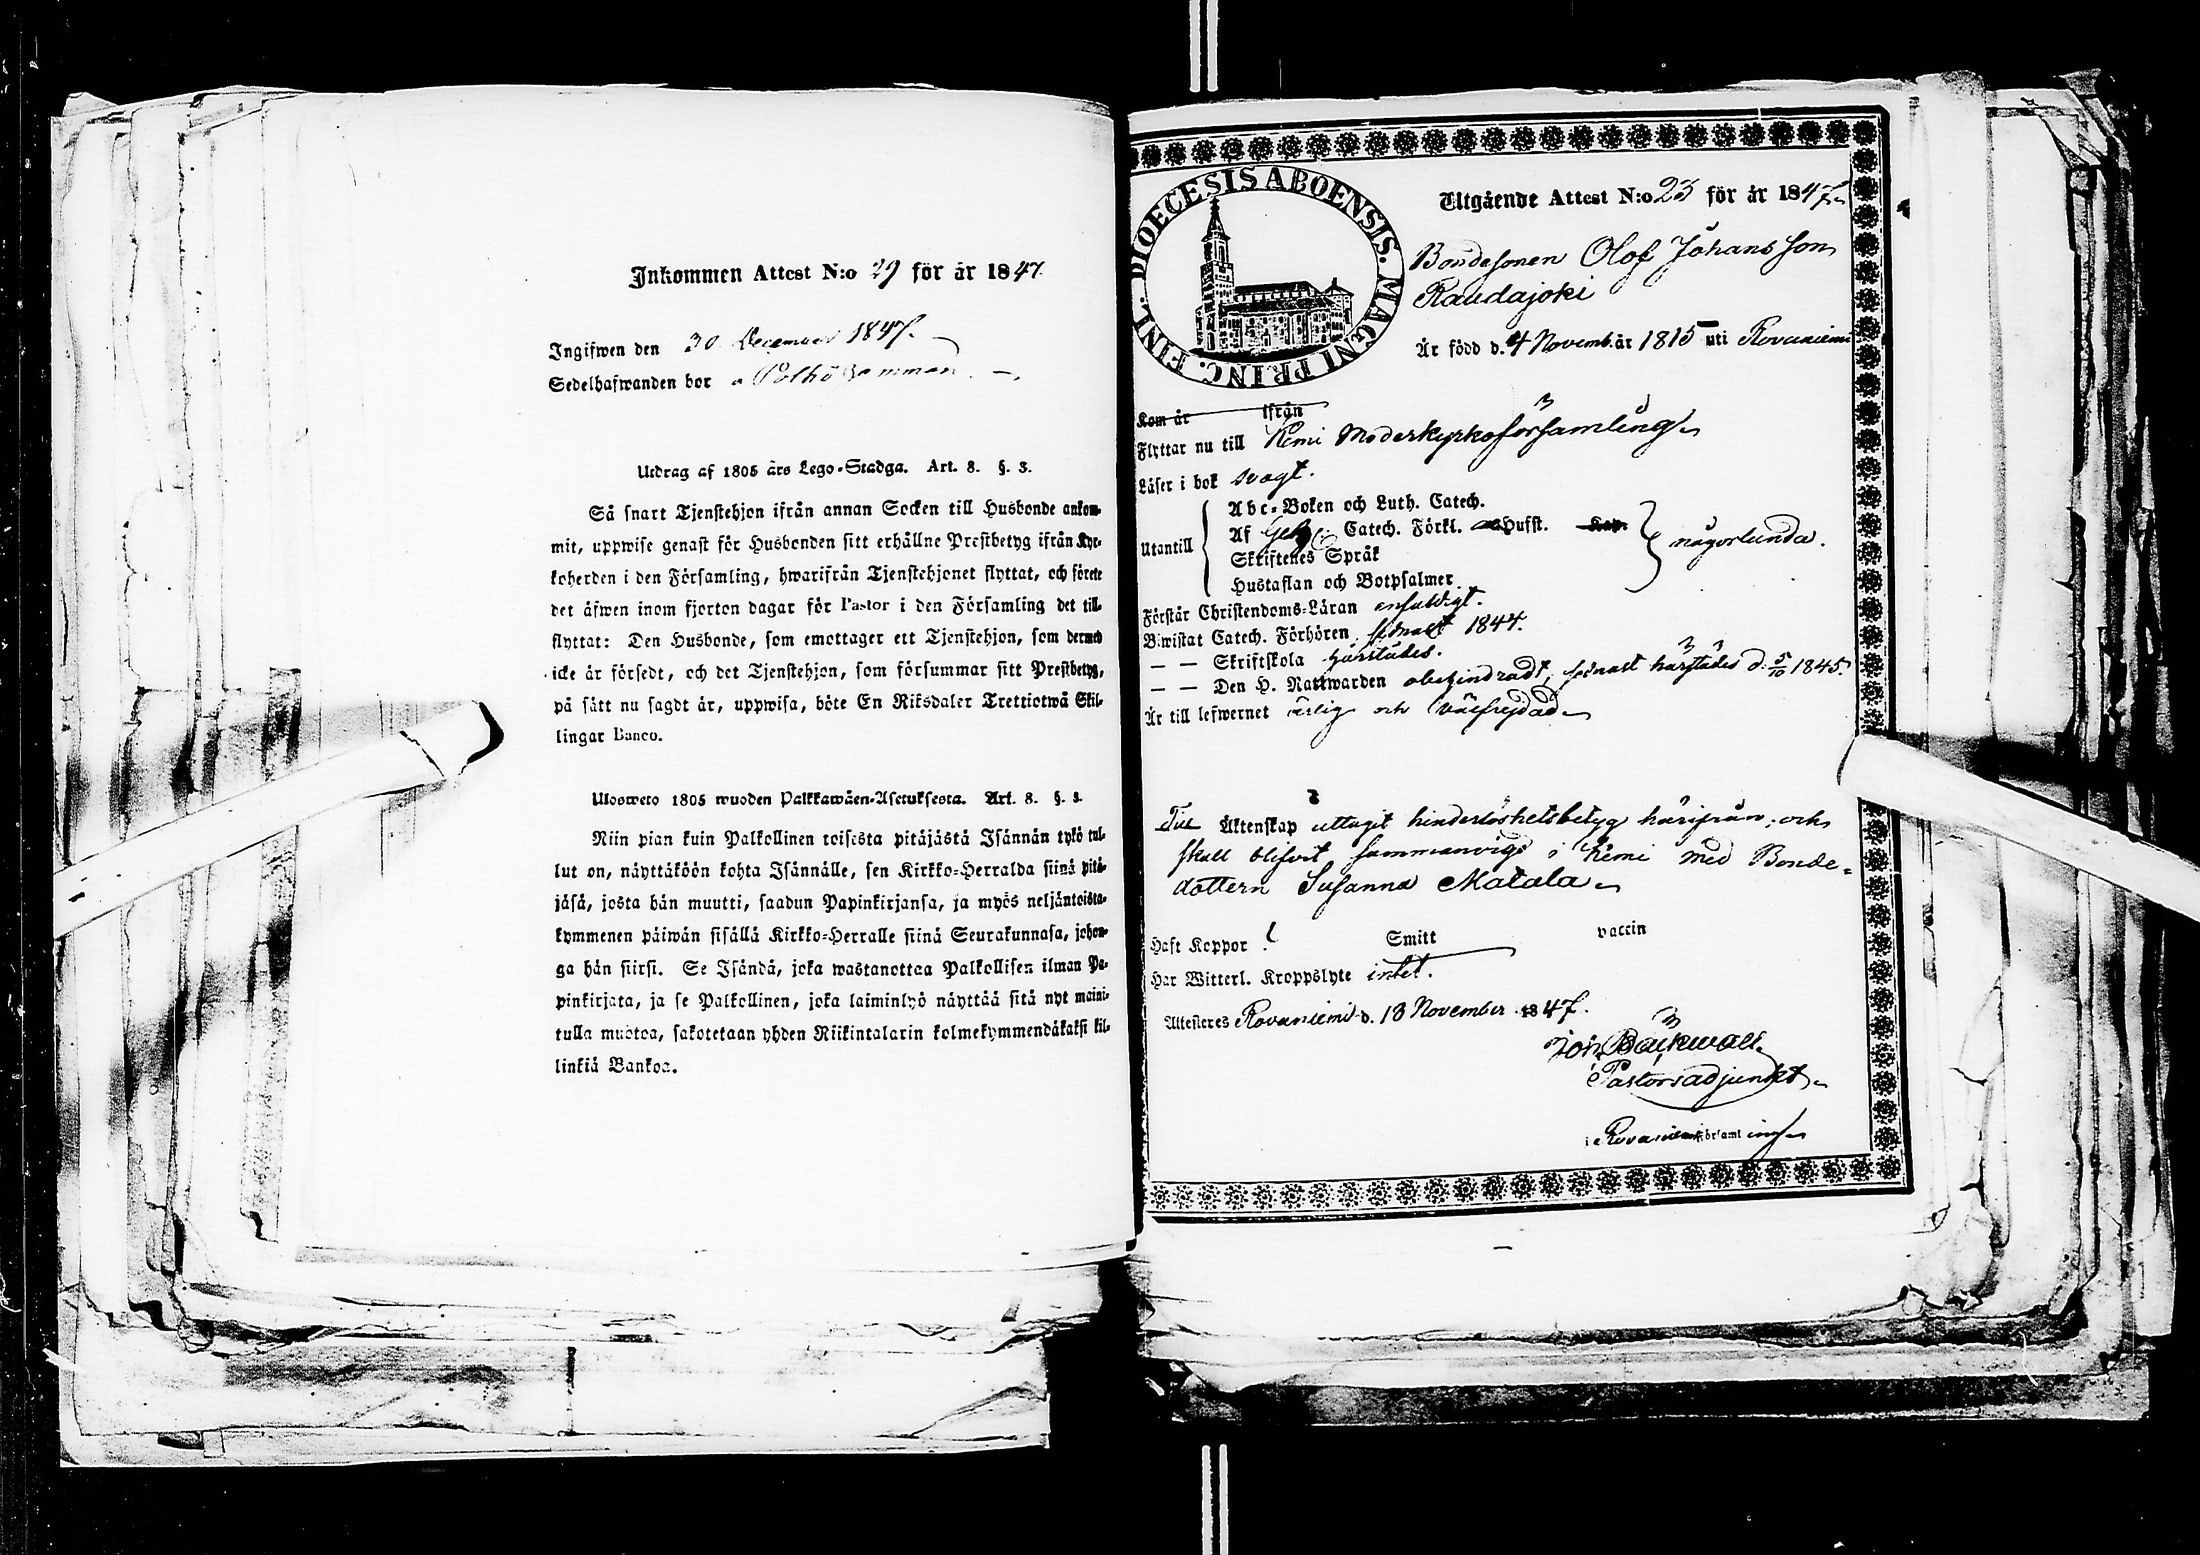 Inkommen Attest N:o 29 för år 1847
Ingifwen den 30 December 1847.
Sedelhafwanden bor
Utdrag af 1805 års Lego-Stadga. Art. 8. §. 3.
Så snart Tjenstehjon ifrån annan Socken till Husbonde ankom-
mit, uppwise genast för Husbonden sitt erhållne Prestbetyg ifrån Kyr-
koherden i den Församling, hwarifrån Tjenstehjonet flyttat, och förete
det äfwen inom fjorton dagar för Pastor i den Församling det till-
flyttat: Den Husbonde, som emottager ett Tjenstehjon, som dermed
icke är försedt, och det Tjenstehjon, som försummar sitt Prestbetyg,
på sätt nu sagdt är, uppwisa, böte En Riksdaler Trettiotwå Skil-
lingar Banco.
Ulosweto 1805 wuoden Palkkawäen-Asetuksesta. Art. 8. §. 3.
Niin pian kuin Palkollinen toisesta pitäjästä Isännän tykö tul-
lut on, näyttäköön kohta Isännälle, sen Kirkko-Herralda siinä pitä-
jäsä, josta hän muutti, saadun Papinkirjansa, ja myös neljäntoista-
kymmenen päiwän sisällä Kirkko-Herralle siinä Seurakunnasa, johon-
ga hän siirsi. Se Isändä, joka wastanottaa Palkollisen ilman Pa-
pinkirjata, ja se Palkollinen, joka laiminlyö näyttää sitä nyt maini-
tulla muotoa, sakotetaan yhden Riikintalarin kolmekymmendäkaksi kil-
linkiä Bankoa.
DIOECESIS ABOENSIS. MAGNI PRINC. FINL.
Utgående Attest N:o 23 för år 1847
Bondesonen Olof Johansson
Raudajoki
Är född d. 4 Novemb. år 1815 uti Rovaniemi
Kom år ifrån
Flyttar nu till Kemi Moderkyrkoförsamling
Läser i bok svagt.
Utantill
Abc-Boken och Luth. Catech.
Af Catech. Förkl. Husst. Kap.
Skriftenes Språk
Hustaflan och Botpsalmer
någorlunda.
Förstår Christendoms-Läran enfaldigt.
Biwistat Catech. Förhören sednast 1844.
— — Skriftskola härstädes.
— — Den H. Nattwarden obehindradt, sednast härstädes d. 5/10 1845.
Är till lefwernet ärlig och välfrejdad
Till Äktenskap uttagit hinderlöshetsbetyg härifrån, och
skall blifvit sammanvigd i Kemi med Bonde-
dottern Susanna Matala
Haft Koppor Smitt vaccin
Har Witterl. Kroppslyte intet.
Attesteres Rovaniemi d. 18 November 1847.
Joh. Bäckwall
Pastorsadjunkt
i Rovaniemi församling